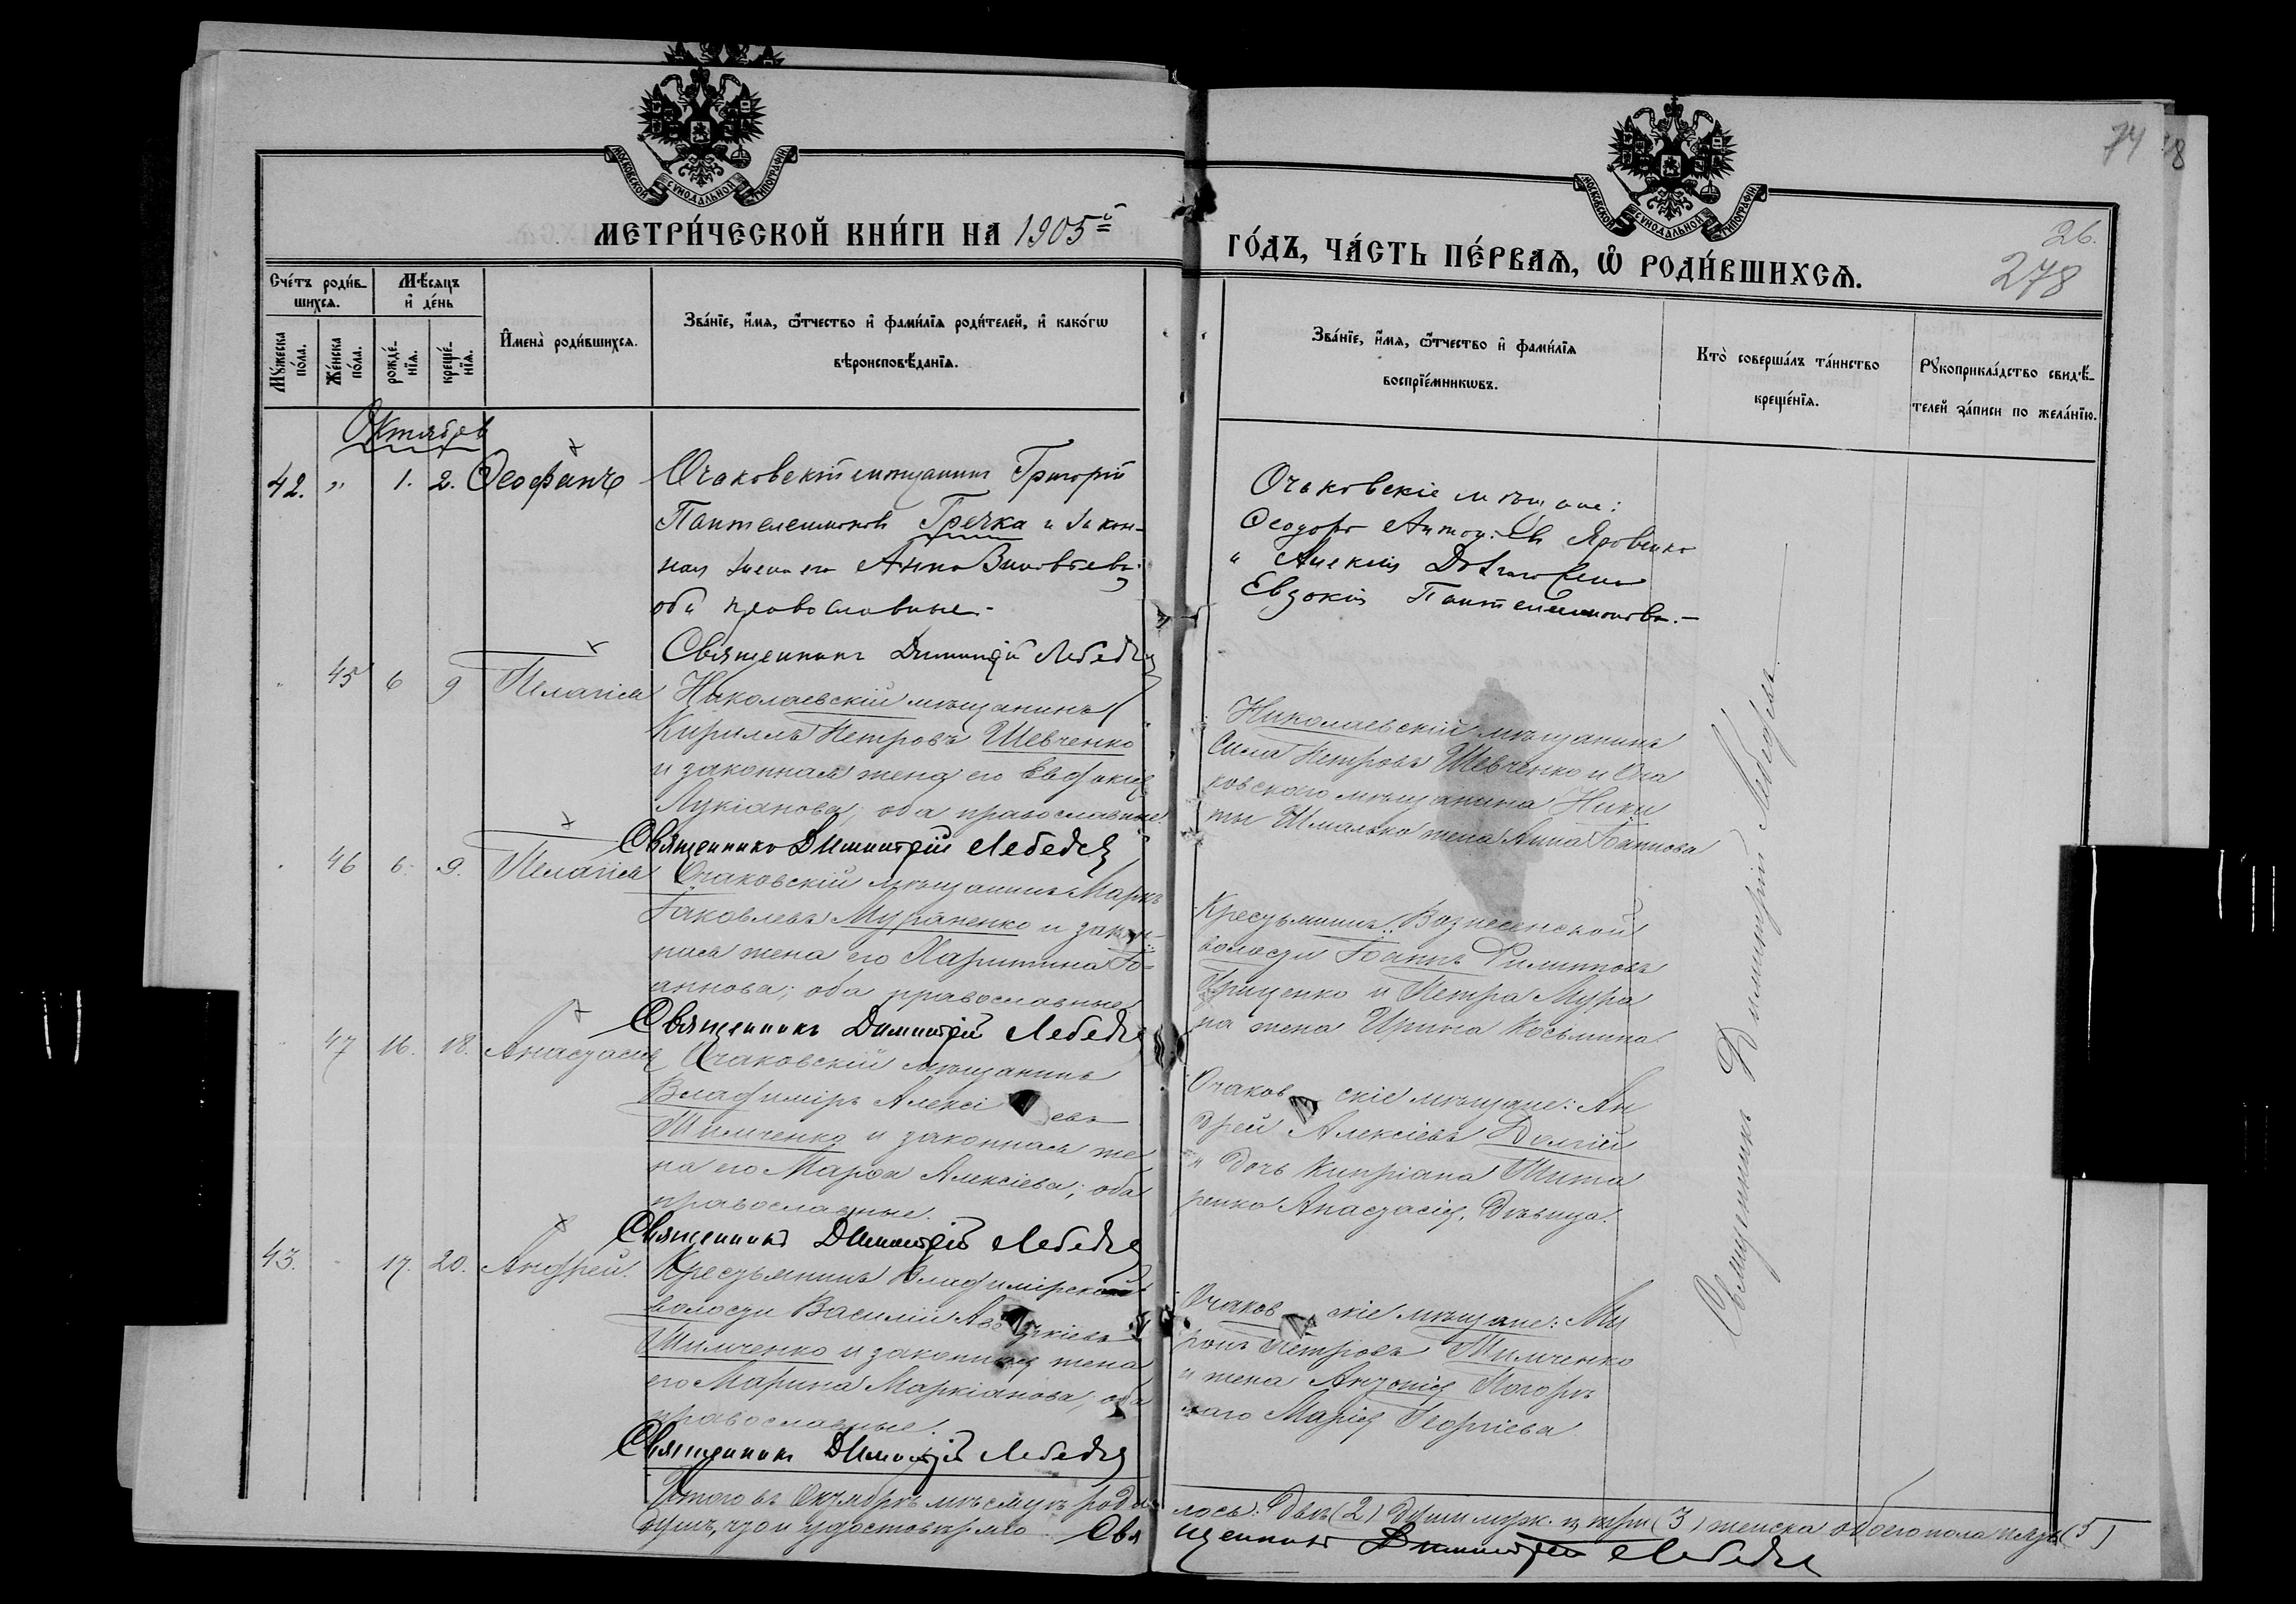 МОСКОВСКОЙ СѴНОДАЛЬНОЙ ТИПОГРАФІИ
МОСКОВСКОЙ СѴНОДАЛЬНОЙ ТИПОГРАФІИ
74
МЕТРИ́ЧЕСКОЙ КНИ́ГИ НА 1905й
ГО́ДЪ, ЧА́СТЬ ПЕ́РВАѦ, Ѡ҆ РОДИ́ВШИХСѦ.
26.
278
Сче́тъ роди́в-
шихсѧ.
Мѣ́сѧцъ
и҆ де́нь
Мꙋ́жеска
по́ла.
Же́нска
по́ла.
рожде́-
нїѧ.
креще́-
нїѧ.
И҆мена̀ роди́вшихсѧ.
Зва́нїе, и҆́мѧ, ѻ҆́тчество и҆ фами́лїѧ роди́телей, и҆ како́гѡ
вѣроисповѣ́данїѧ.
Зва́нїе, и҆́мѧ, ѻ҆́тчество и҆ фами́лїѧ
воспрїе́мникѡвъ.
Кто̀ соверша́лъ та́инство
креще́нїѧ.
Рꙋкоприкла́дство свидѣ́-
телей за́писи по жела́нїю.
Октябрь
42. " 1. 2. Ѳеофанъ
Очаковскій мѣщанинъ Григорій
Пантелеимоновъ Гречка и закон-
ная жена его Анна Зиновьева;
оба православные.-
Священникъ Димитрій Лебедевъ
Очаковскіе мѣщане:
Ѳеодоръ Яровенко
"
Евдокія Пантелеимонова.-
" 45 6 9 Пелагія
Николаевскій мѣщанинъ
Кириллъ Петровъ Шевченко
и законная жена его Евдокія
Лукіанова; оба православные.
Священникъ Димитрій Лебедевъ
Николаевскій мѣщанинъ
Сила Петровъ Шевченко и Оча
ковского мѣщанина Ники
ты Шмалько жена Анна Іоаннова
46 6. 9. Пелагія
Очаковскій мѣщанинъ Маркъ
Іаковлевъ Мураненко и закон-
ная жена его Харитина Іо-
аннова; оба православные
Священникъ Димитрій Лебедевъ
Крестьянинъ: Вознесенской
волости Іоаннъ Филипповъ
Гриценко и Петра Мура
на жена Ирина Косьмина.
47 16. 18. Анастасія
Очаковскій мѣщанинъ
Владиміръ Алексі евъ
Тимченко и законная же
на его Марѳа Алексіева; оба
православные.
Священникъ Димитрій Лебедевъ
Очаков скіе мѣщане: Ан
дрей Алексіевъ Долгій
и дочь Кипріана Тита
ренко Анастасія, дѣвица.
43. 17. 20. Андрей.
Крестьянинъ Владимірской
волости Василій
Тимченко и законная жена
его Марина Маркіанова; оба
православные.
Священникъ Димитрій Лебедевъ
Очаков скіе мѣщане: Ми
ронъ Петровъ Тимченко
и жена Антонія Погорѣ
лаго Марія Георгіева
Священникъ Димитрій Лебедевъ
Итого въ Октябрѣ мѣсяцѣ роди лось: двѣ (2) души муж. и три (3) женска обоего пола пять (5)
душъ, что и удостовѣряю Свя щенникъ Димитрій Лебедевъ